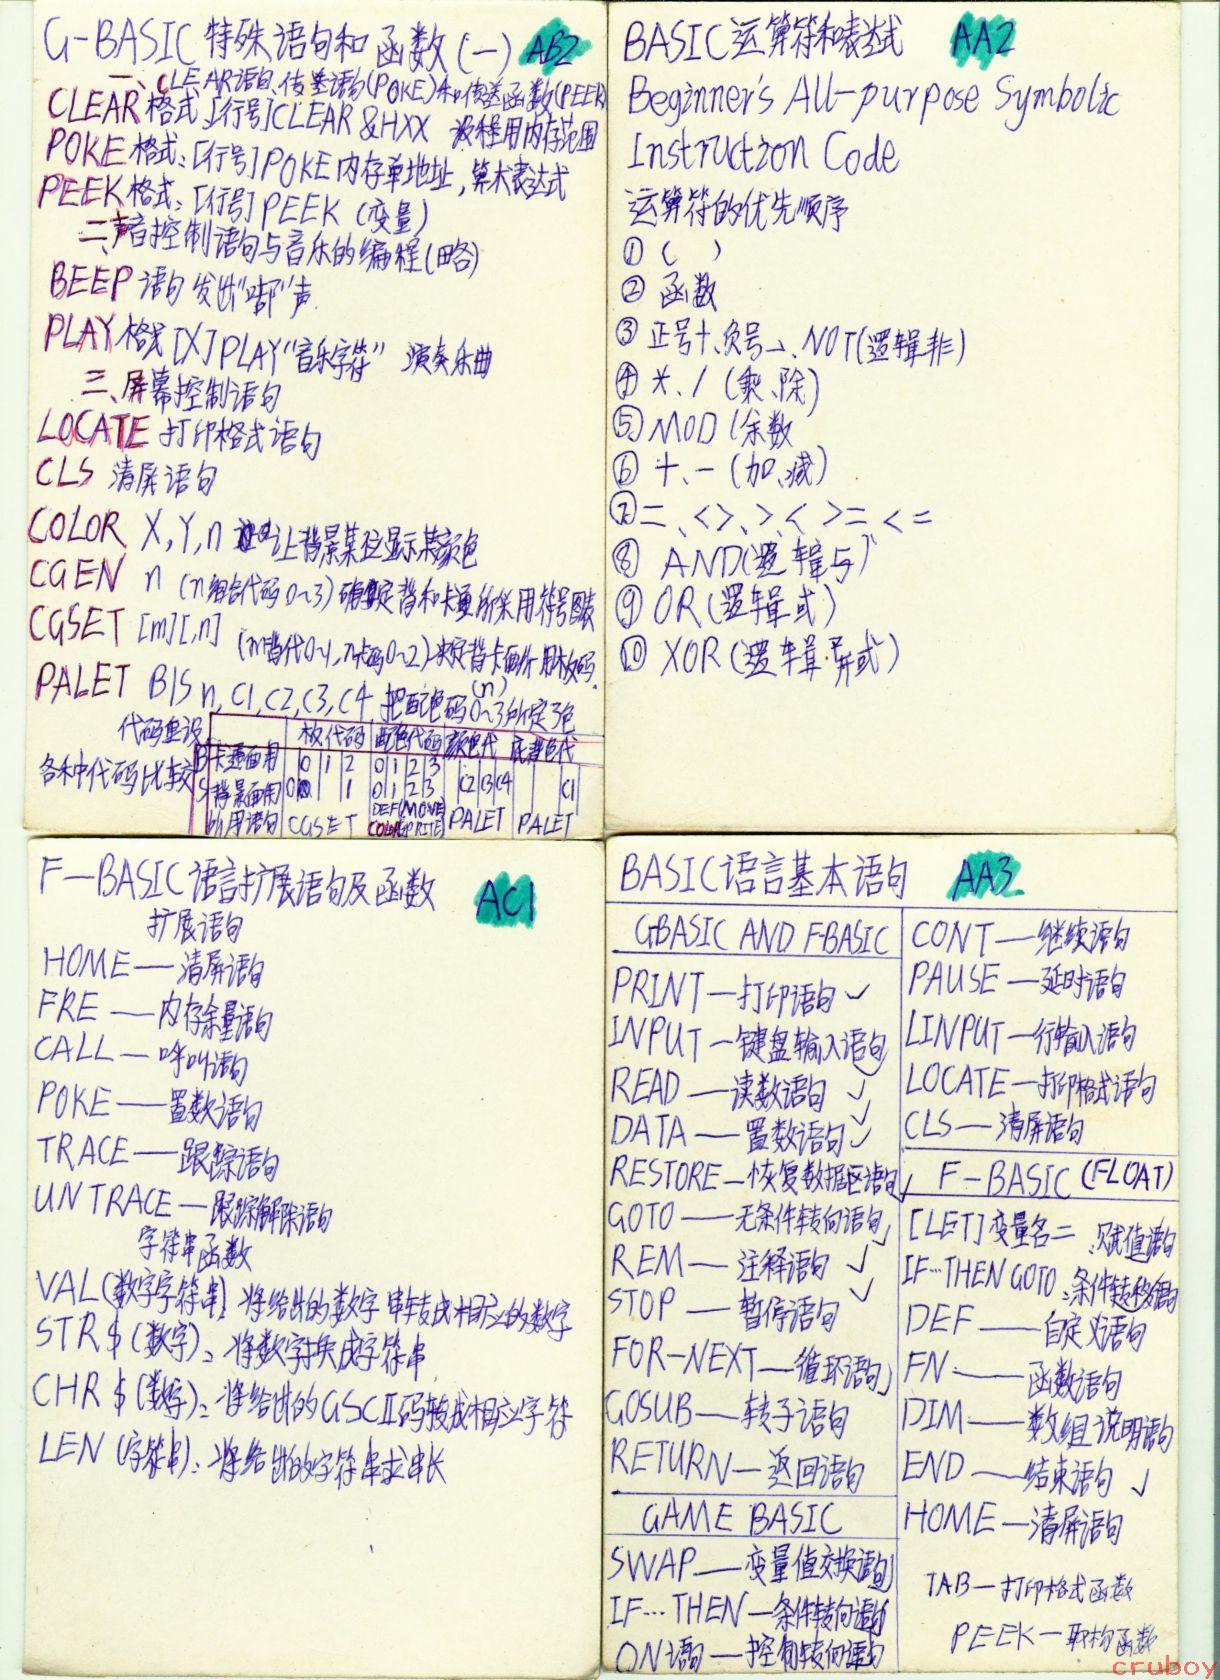 G-BASIC 特殊语句和函数(一) AB2
一、CLEAR语句、传送语句(POKE)和传送函数(PEEK)
CLEAR 格式:[行号]CLEAR &HXX 设程用内存范围
POKE 格式:[行号]POKE 内存单地址,算术表达式
PEEK 格式:[行号]PEEK(变量)
二、声音控制语句与音乐的编程(略)
BEEP 语句 发出"嘟"声
PLAY 格式[X]PLAY"音乐字符" 演奏乐曲
三、屏幕控制语句
LOCATE 打印格式语句
CLS 清屏语句
COLOR X,Y,n 让背景某位显示某颜色
CGEN n (n组合代码0~3)确定背和卡通所采用符号图表
CGSET [m][,n] (m背代0~1,n卡码0~2)决定背卡面所用板码
PALET B|S n,C1,C2,C3,C4 把配色码(n)0~3所定3色
代码重设
各种代码比较
板代码 配色代码 颜色代 底背色代
B卡通面用 0 1 2 0 1 2 3 C2 C3 C4
S背景面用 0 1 0 1 2 3 C1
所用语句 CGSET DEF(MOVE) COLOR(SPRITE) PALET PALET
BASIC运算符和表达式 AA2
Beginner's All-purpose Symbolic
Instruction Code
运算符的优先顺序
① ( )
② 函数
③ 正号+、负号-、NOT(逻辑非)
④ *、/ (乘、除)
⑤ MOD (余数
⑥ +、- (加、减)
⑦ =、<>、>、< >= <=
⑧ AND(逻辑与)
⑨ OR(逻辑或)
⑩ XOR(逻辑异或)
F-BASIC语言扩展语句及函数 AC1
扩展语句
HOME—清屏语句
FRE —内存余量语句
CALL—呼叫语句
POKE——置数语句
TRACE—跟踪语句
UNTRACE—跟踪解除语句
字符串函数
VAL(数字字符串):将给出的数字串转成相应的数字
STR$(数字):将数字换成字符串
CHR$(数字):将给出的GSCII码转成相应字符
LEN(字符串):将给出的字符串求串长
BASIC语言基本语句 AA3
GBASIC AND F-BASIC
PRINT—打印语句 ✓
INPUT—键盘输入语句 ✓
READ—读数语句 ✓
DATA—置数语句 ✓
RESTORE—恢复数据区语句 ✓
GOTO——无条件转向语句 ✓
REM——注释语句 ✓
STOP——暂停语句 ✓
FOR-NEXT—循环语句 ✓
GOSUB—转子语句
RETURN—返回语句
GAME BASIC
SWAP—变量值交换语句
IF…THEN—条件转向语句
ON语句—控制转向语句
CONT—继续语句
PAUSE—延时语句
LINPUT—行输入语句
LOCATE—打印格式语句
CLS—清屏语句
F-BASIC (FLOAT)
[LET]变量名=:赋值语句
IF…THEN GOTO:条件转移语句
DEF——自定义语句
FN——函数语句
DIM——数组说明语句
END——结束语句 ✓
HOME—清屏语句
TAB—打印格式函数
PEEK—取构函数
cruboy